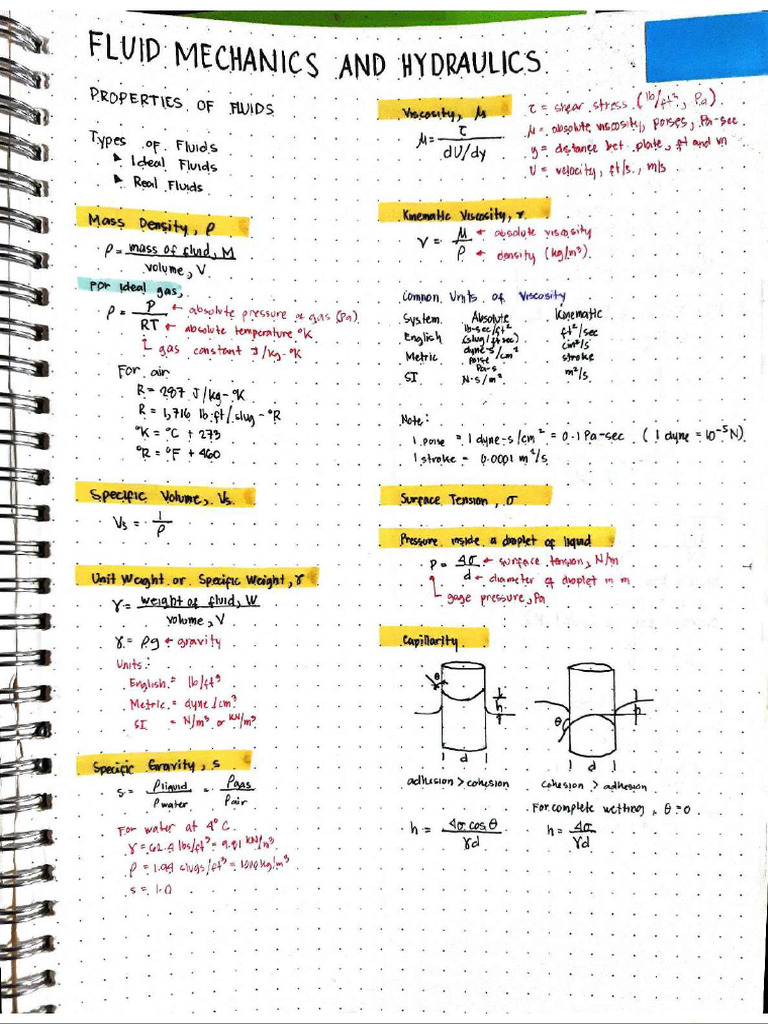 FLUID MECHANICS AND HYDRAULICS
PROPERTIES OF FLUIDS
Types of Fluids
▸ Ideal Fluids
▸ Real Fluids
Mass Density, ρ
ρ = mass of fluid, M / volume, V
For Ideal gas,
ρ = P / RT
← absolute pressure of gas (Pa)
← absolute temperature °K
↳ gas constant J/kg-°K
For air
R = 287 J/kg-°K
R = 1,716 lb·ft/slug-°R
°K = °C + 273
°R = °F + 460
Specific Volume, Vs
Vs = 1/ρ
Unit Weight or Specific Weight, γ
γ = weight of fluid, W / volume, V
γ = ρg ← gravity
Units:
English = lb/ft³
Metric = dyne/cm³
SI = N/m³ or kN/m³
Specific Gravity, s
s = ρliquid / ρwater = ρgas / ρair
For water at 4°C
γ = 62.4 lbs/ft³ = 9.81 kN/m³
ρ = 1.94 slugs/ft³ = 1000 kg/m³
s = 1.0
Viscosity, μ
μ = τ / dU/dy
τ = shear stress (lb/ft², Pa)
μ = absolute viscosity, poises, Pa-sec
y = distance bet. plate, ft and m
U = velocity, ft/s, m/s
Kinematic Viscosity, ν
ν = μ / ρ
← absolute viscosity
← density (kg/m³)
Common Units of Viscosity
System Absolute Kinematic
English lb-sec/ft² (slug/ft sec) ft²/sec
Metric dyne-s/cm² poise cm²/s stroke
SI Pa-s N·s/m² m²/s
Note:
1 poise = 1 dyne-s/cm² = 0.1 Pa-sec (1 dyne = 10⁻⁵ N)
1 stroke = 0.0001 m²/s
Surface Tension, σ
Pressure inside a droplet of liquid
P = 4σ / d
← surface tension, N/m
← diameter of droplet in m
↳ gage pressure, Pa
Capillarity
θ h d
θ h d
adhesion > cohesion
cohesion > adhesion
For complete wetting, θ = 0
h = 4σ cos θ / γd
h = 4σ / γd